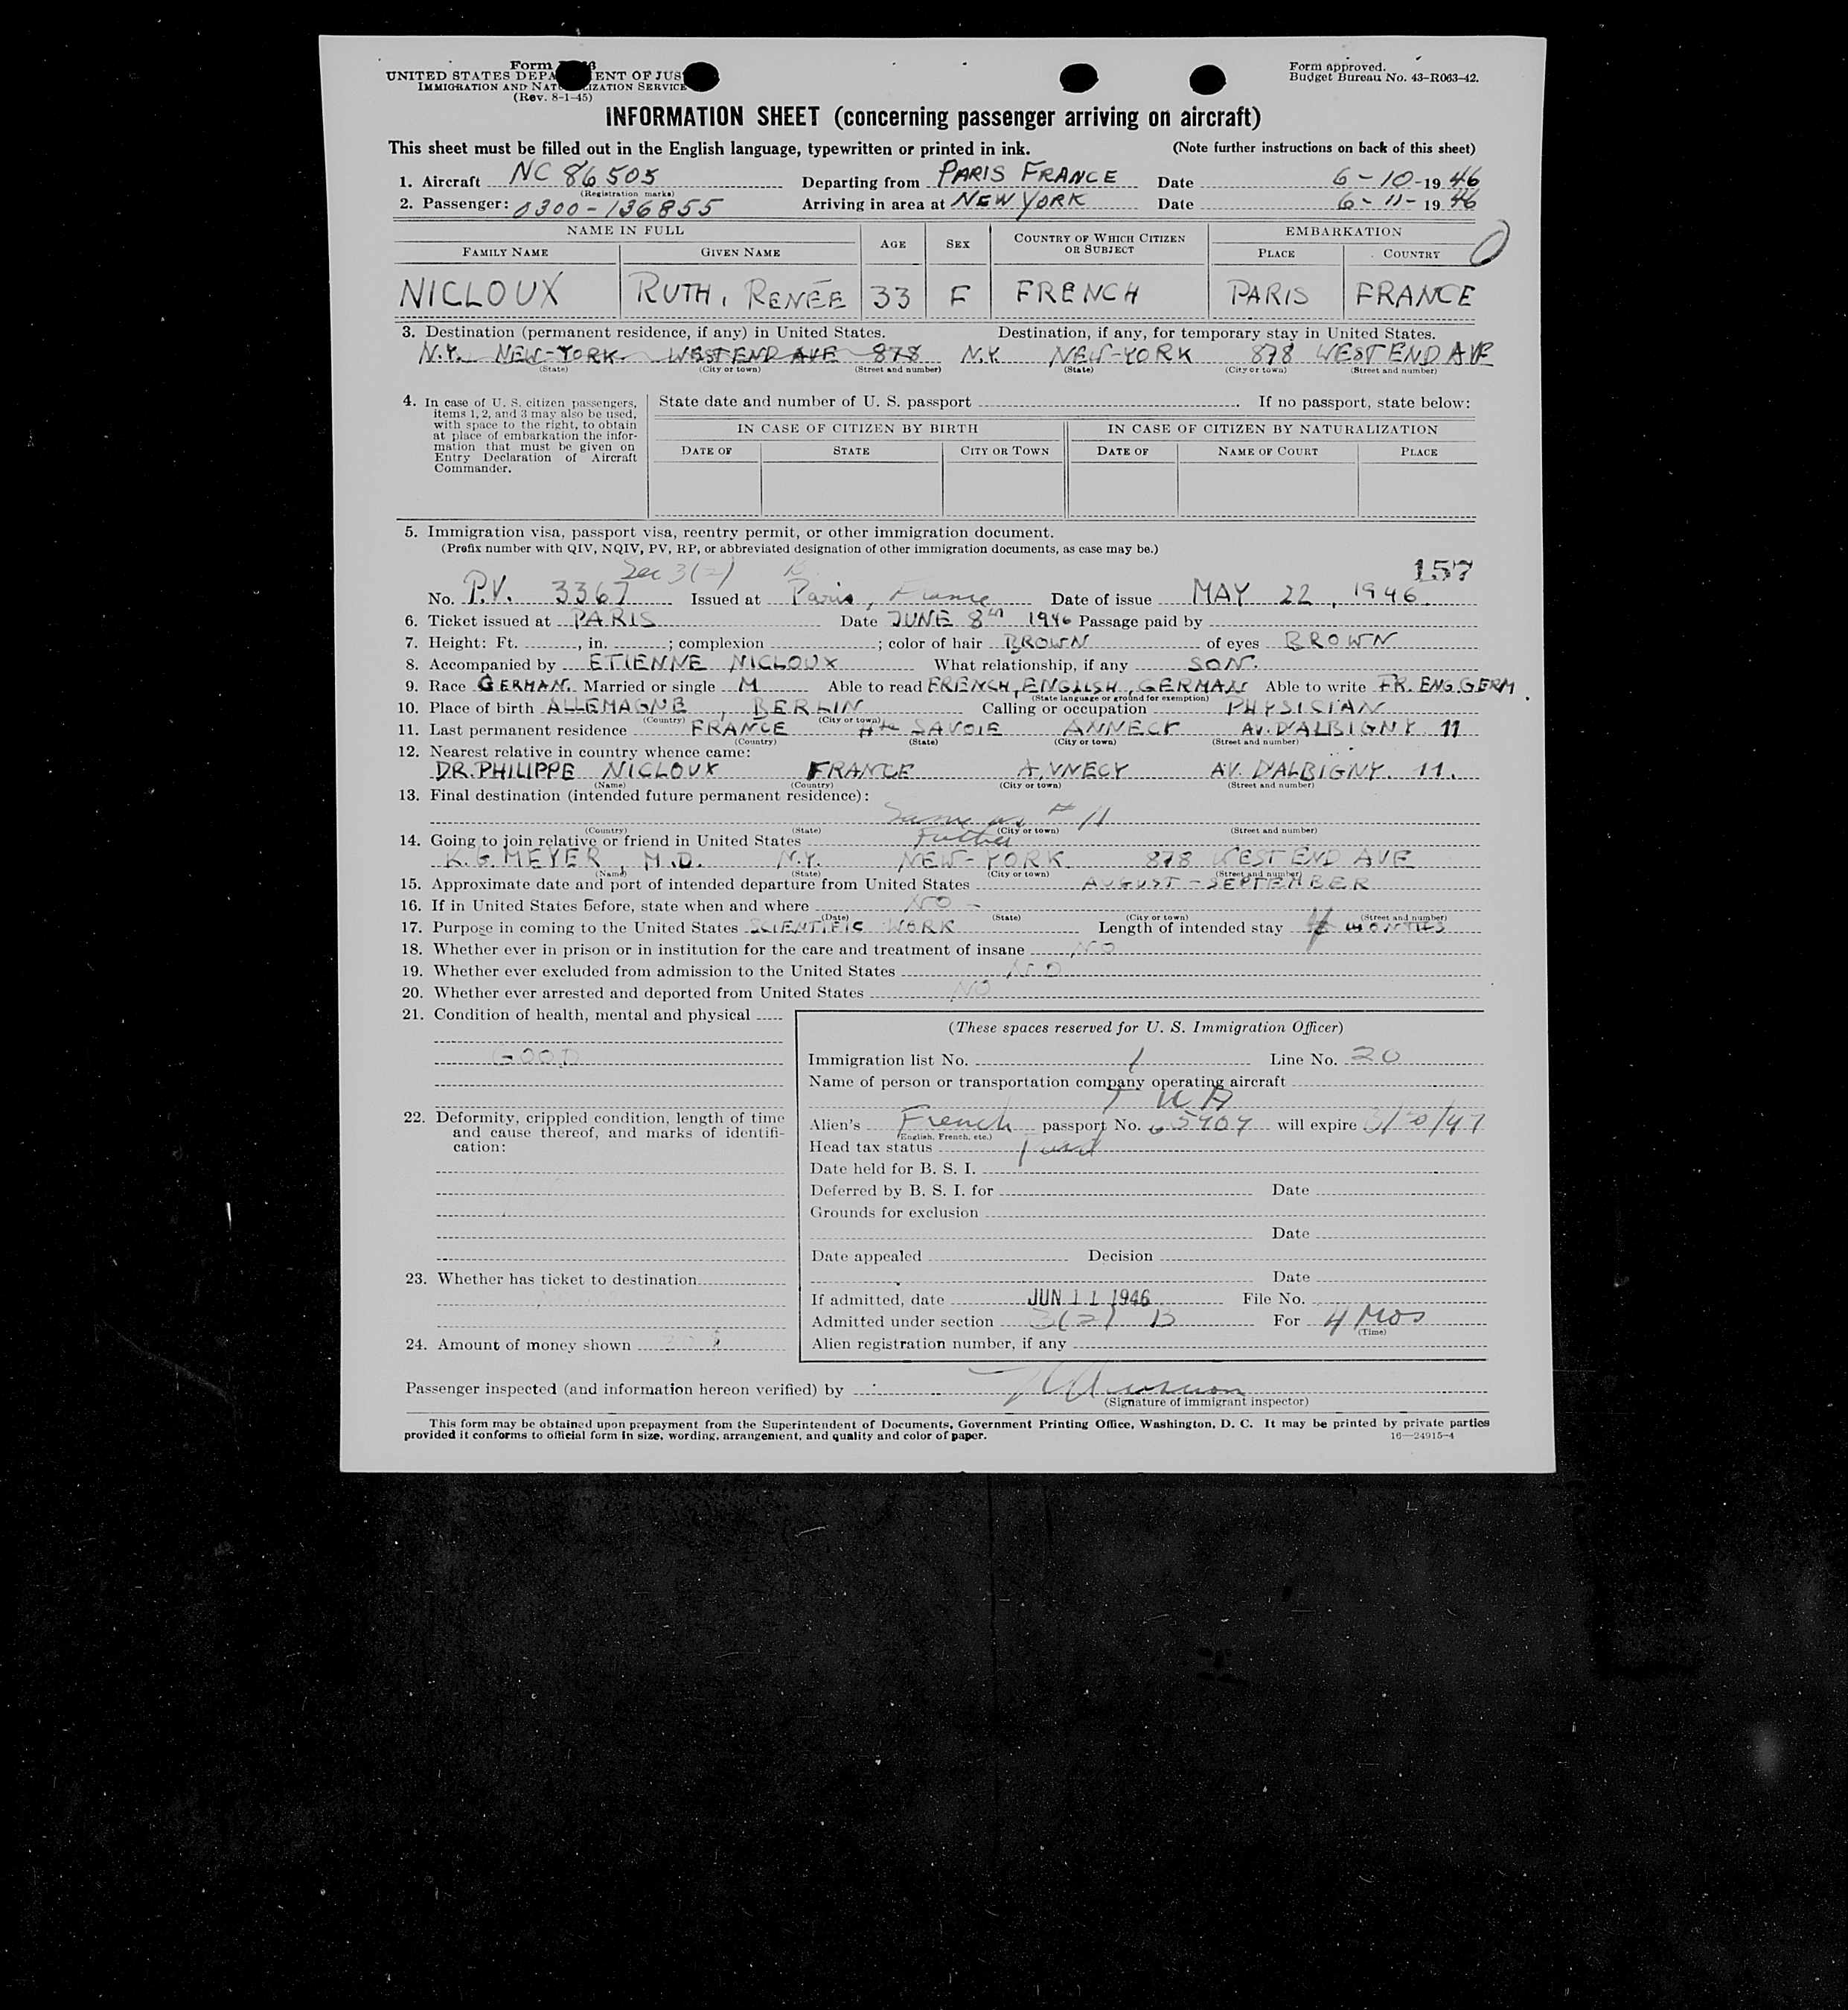 Form
UNITED STATES DEPA ENT OF JUS
IMMIGRATION AND NATU IZATION SERVICE
(Rev. 8-1-45)
Form approved.
Budget Bureau No. 43-R063-42.
INFORMATION SHEET (concerning passenger arriving on aircraft)
This sheet must be filled out in the English language, typewritten or printed in ink. (Note further instructions on back of this sheet)
1. Aircraft NC 86505 Departing from PARIS FRANCE Date 6-10-1946
(Registration marks)
2. Passenger: 0300-136855 Arriving in area at NEW YORK Date 6-11-1946
NAME IN FULL AGE SEX COUNTRY OF WHICH CITIZEN OR SUBJECT EMBARKATION
FAMILY NAME GIVEN NAME PLACE COUNTRY
NICLOUX RUTH, RENÉE 33 F FRENCH PARIS FRANCE
3. Destination (permanent residence, if any) in United States. Destination, if any, for temporary stay in United States.
N.Y. NEW-YORK WESTEND AVE 878 N.Y. NEW-YORK 878 WEST END AVE
(State) (City or town) (Street and number) (State) (City or town) (Street and number)
4. In case of U. S. citizen passengers, items 1, 2, and 3 may also be used, with space to the right, to obtain at place of embarkation the information that must be given on Entry Declaration of Aircraft Commander.
State date and number of U. S. passport If no passport, state below:
IN CASE OF CITIZEN BY BIRTH IN CASE OF CITIZEN BY NATURALIZATION
DATE OF STATE CITY OR TOWN DATE OF NAME OF COURT PLACE
5. Immigration visa, passport visa, reentry permit, or other immigration document.
(Prefix number with QIV, NQIV, PV, RP, or abbreviated designation of other immigration documents, as case may be.)
157
Sec 3(2) B
No. P.V. 3367 Issued at Paris, France Date of issue MAY 22, 1946.
6. Ticket issued at PARIS Date JUNE 8th 1946 Passage paid by
7. Height: Ft. , in. ; complexion ; color of hair BROWN of eyes BROWN
8. Accompanied by ETIENNE NICLOUX What relationship, if any SON.
9. Race GERMAN. Married or single M Able to read FRENCH, ENGLISH, GERMAN Able to write FR. ENG. GERM.
(State language or ground for exemption)
10. Place of birth ALLEMAGNE, BERLIN Calling or occupation PHYSICIAN
(Country) (City or town)
11. Last permanent residence FRANCE Hte SAVOIE ANNECY AV. D'ALBIGNY 11
(Country) (State) (City or town) (Street and number)
12. Nearest relative in country whence came:
DR. PHILIPPE NICLOUX FRANCE ANNECY AV. D'ALBIGNY. 11.
(Name) (Country) (City or town) (Street and number)
13. Final destination (intended future permanent residence):
Same as # 11
(Country) (State) (City or town) (Street and number)
14. Going to join relative or friend in United States Father
K. G. MEYER, M.D. N.Y. NEW-YORK 878 WEST END AVE
(Name) (State) (City or town) (Street and number)
15. Approximate date and port of intended departure from United States AUGUST - SEPTEMBER
16. If in United States before, state when and where NO -
(Date) (State) (City or town) (Street and number)
17. Purpose in coming to the United States SCIENTIFIC WORK Length of intended stay 4 MONTHS
18. Whether ever in prison or in institution for the care and treatment of insane NO
19. Whether ever excluded from admission to the United States NO
20. Whether ever arrested and deported from United States NO
21. Condition of health, mental and physical
GOOD
22. Deformity, crippled condition, length of time and cause thereof, and marks of identification:
23. Whether has ticket to destination
24. Amount of money shown
(These spaces reserved for U. S. Immigration Officer)
Immigration list No. 1 Line No. 20
Name of person or transportation company operating aircraft
TWA
Alien's French passport No. 65707 will expire
(English, French, etc.)
Head tax status
Date held for B. S. I.
Deferred by B. S. I. for Date
Grounds for exclusion
Date
Date appealed Decision
Date
If admitted, date JUN 11 1946 File No.
Admitted under section 3(2) B For 4 Mos
(Time)
Alien registration number, if any
Passenger inspected (and information hereon verified) by
(Signature of immigrant inspector)
This form may be obtained upon prepayment from the Superintendent of Documents, Government Printing Office, Washington, D. C. It may be printed by private parties
provided it conforms to official form in size, wording, arrangement, and quality and color of paper. 16—24915-4